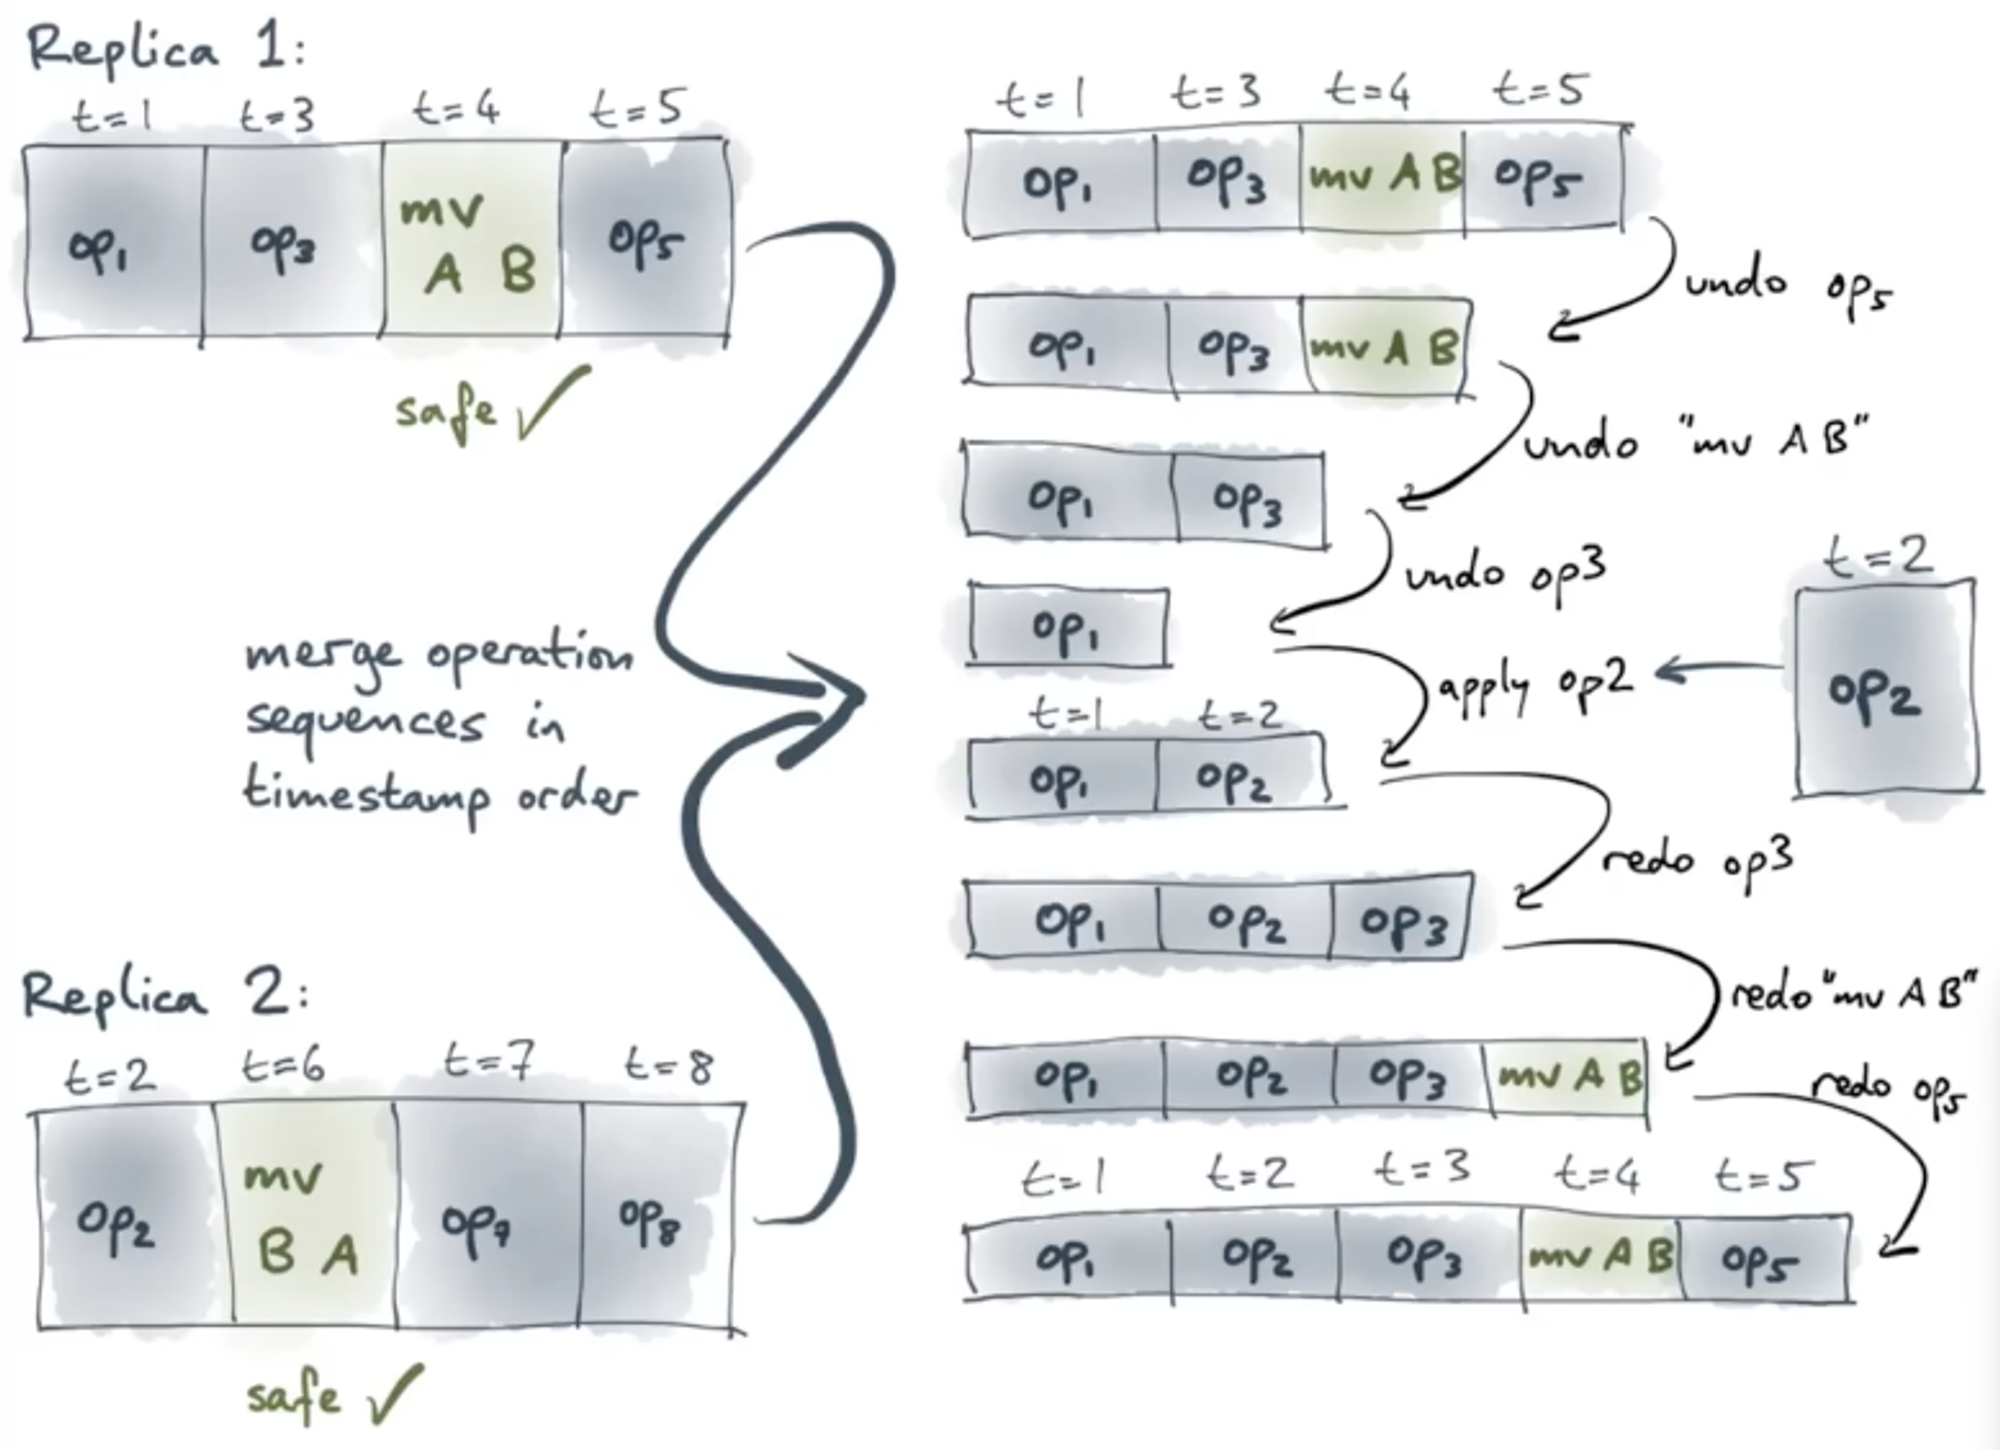 Replica 1:
t=1 t=3 t=4 t=5
op₁ op₃ mv A B op₅
safe ✓
merge operation
sequences in
timestamp order
Replica 2:
t=2 t=6 t=7 t=8
op₂ mv B A op₇ op₈
safe ✓
t=1 t=3 t=4 t=5
op₁ op₃ mv A B op₅
undo op₅
op₁ op₃ mv A B
undo "mv A B"
op₁ op₃
undo op3
op₁
t=2
op₂
apply op2
t=1 t=2
op₁ op₂
redo op3
op₁ op₂ op₃
redo "mv A B"
op₁ op₂ op₃ mv A B
redo op₅
t=1 t=2 t=3 t=4 t=5
op₁ op₂ op₃ mv A B op₅